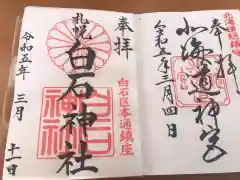 北海道総鎮守
奉拝
北海道神宮
令和五年三月四日
奉拝
札幌
白石神社
白石区本通鎮座
白石神社
令和五年
三月
十一日